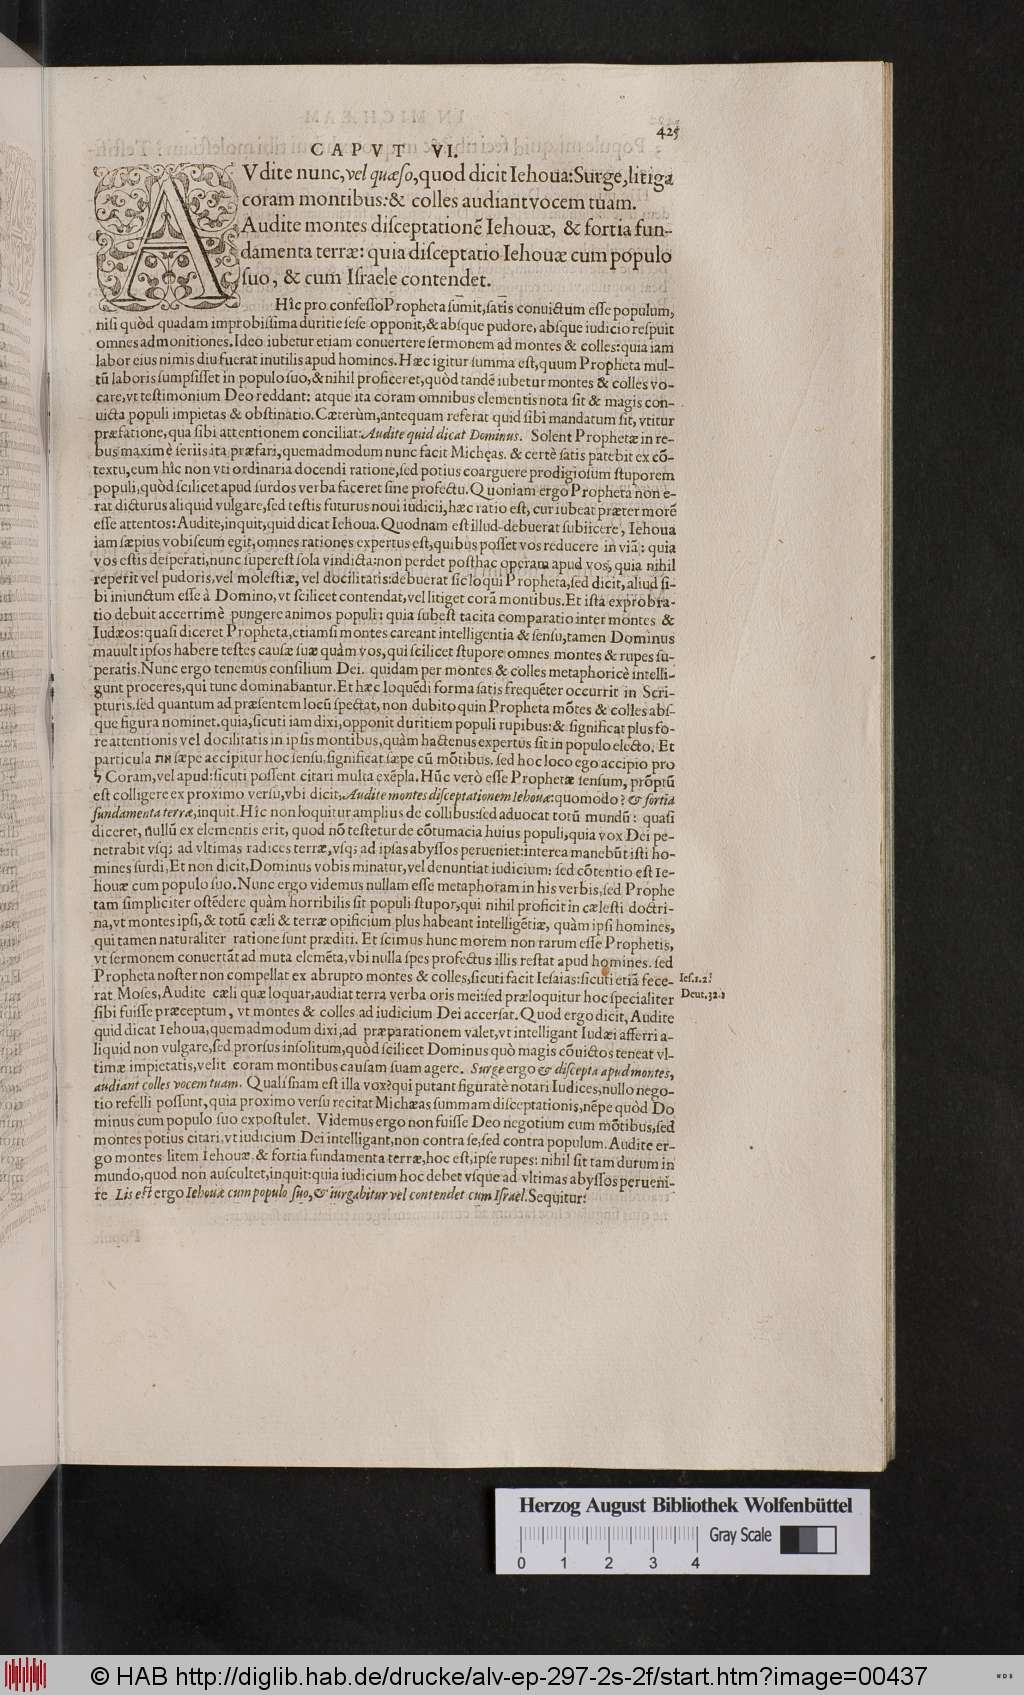 425
CAPVT VI.
AVdite nunc, vel quæso, quod dicit Iehoua: Surge, litiga
coram montibus: & colles audiant vocem tuam.
Audite montes disceptationẽ Iehouæ, & fortia fun-
damenta terræ: quia disceptatio Iehouæ cum populo
suo, & cum Israele contendet.
Hîc pro confesso Propheta sumit, satis conuictum esse populum,
nisi quòd quadam improbissima duritie sese opponit, & absque pudore, absque iudicio respuit
omnes admonitiones. Ideo iubetur etiam conuertere sermonem ad montes & colles: quia iam
labor eius nimis diu fuerat inutilis apud homines. Hæc igitur summa est, quum Propheta mul-
tũ laboris sumpsisset in populo suo, & nihil proficeret, quòd tandẽ iubetur montes & colles vo-
care, vt testimonium Deo reddant: atque ita coram omnibus elementis nota sit & magis con-
uicta populi impietas & obstinatio. Cæterùm, antequam referat quid sibi mandatum sit, vtitur
præfatione, qua sibi attentionem conciliat: Audite quid dicat Dominus. Solent Prophetæ in re-
bus maximè seriis ita præfari, quemadmodum nunc facit Michęas. & certè satis patebit ex cõ-
textu, eum hîc non vti ordinaria docendi ratione, sed potius coarguere prodigiosum stuporem
populi, quòd scilicet apud surdos verba faceret sine profectu. Quoniam ergo Propheta non e-
rat dicturus aliquid vulgare, sed testis futurus noui iudicii, hæc ratio est, cur iubeat præter morẽ
esse attentos: Audite, inquit, quid dicat Iehoua. Quodnam est illud debuerat subiicere, Iehoua
iam sæpius vobiscum egit, omnes rationes expertus est, quibus posset vos reducere in viã: quia
vos estis desperati, nunc superest sola vindicta: non perdet posthac operam apud vos, quia nihil
reperit vel pudoris, vel molestiæ, vel docilitatis: debuerat sic loqui Propheta, sed dicit, aliud si-
bi iniunctum esse à Domino, vt scilicet contendat, vel litiget corã montibus. Et ista exprobra-
tio debuit accerrimè pungere animos populi: quia subest tacita comparatio inter montes &
Iudæos: quasi diceret Propheta, etiamsi montes careant intelligentia & sensu, tamen Dominus
mauult ipsos habere testes causæ suæ quàm vos, qui scilicet stupore omnes montes & rupes su-
peratis. Nunc ergo tenemus consilium Dei. quidam per montes & colles metaphoricè intelli-
gunt proceres, qui tunc dominabantur. Et hæc loquẽdi forma satis frequẽter occurrit in Scri-
pturis. sed quantum ad præsentem locũ spectat, non dubito quin Propheta mõtes & colles abs-
que figura nominet. quia, sicuti iam dixi, opponit duritiem populi rupibus: & significat plus fo-
re attentionis vel docilitatis in ipsis montibus, quàm hactenus expertus sit in populo electo. Et
particula את sæpe accipitur hoc sensu. significat sæpe cũ mõtibus. sed hoc loco ego accipio pro
ל Coram, vel apud: sicuti possent citari multa exẽpla. Hũc verò esse Prophetæ sensum, prõptũ
est colligere ex proximo versu, vbi dicit, Audite montes disceptationem Iehouæ: quomodo? & fortia
fundamenta terræ, inquit. Hîc non loquitur amplius de collibus: sed aduocat totũ mundũ: quasi
diceret, nullũ ex elementis erit, quod nõ testetur de cõtumacia huius populi, quia vox Dei pe-
netrabit vsq; ad vltimas radices terræ, vsq; ad ipsas abyssos perueniet: interea manebũt isti ho-
mines surdi. Et non dicit, Dominus vobis minatur, vel denuntiat iudicium: sed cõtentio est Ie-
houæ cum populo suo. Nunc ergo videmus nullam esse metaphoram in his verbis, sed Prophe
tam simpliciter ostẽdere quàm horribilis sit populi stupor, qui nihil proficit in cælesti doctri-
na, vt montes ipsi, & totũ cæli & terræ opificium plus habeant intelligẽtiæ, quàm ipsi homines,
qui tamen naturaliter ratione sunt præditi. Et scimus hunc morem non rarum esse Prophetis,
vt sermonem conuertãt ad muta elemẽta, vbi nulla spes profectus illis restat apud homines. sed
Propheta noster non compellat ex abrupto montes & colles, sicuti facit Iesaias: sicuti etiã fece-
rat Moses, Audite cæli quæ loquar, audiat terra verba oris mei: sed præloquitur hoc specialiter
sibi fuisse præceptum, vt montes & colles ad iudicium Dei accersat. Quod ergo dicit, Audite
quid dicat Iehoua, quemadmodum dixi, ad præparationem valet, vt intelligant Iudæi afferri a-
liquid non vulgare, sed prorsus insolitum, quòd scilicet Dominus quò magis cõuictos teneat vl-
timæ impietatis, velit coram montibus causam suam agere. Surge ergo & discepta apud montes,
audiant colles vocem tuam. Qualisnam est illa vox? qui putant figuratè notari Iudices, nullo nego-
tio refelli possunt, quia proximo versu recitat Michæas summam disceptationis, nẽpe quòd Do
minus cum populo suo expostulet. Videmus ergo non fuisse Deo negotium cum mõtibus, sed
montes potius citari, vt iudicium Dei intelligant, non contra se, sed contra populum. Audite er-
go montes litem Iehouæ & fortia fundamenta terræ, hoc est, ipse rupes: nihil sit tam durum in
mundo, quod non auscultet, inquit: quia iudicium hoc debet vsque ad vltimas abyssos perueni-
re Lis est ergo Iehouæ cum populo suo, & iurgabitur vel contendet cum Israel. Sequitur:
Ies.1.2.
Deut.32.1
Herzog August Bibliothek Wolfenbüttel
0 1 2 3 4 Gray Scale
© HAB http://diglib.hab.de/drucke/alv-ep-297-2s-2f/start.htm?image=00437
WDB